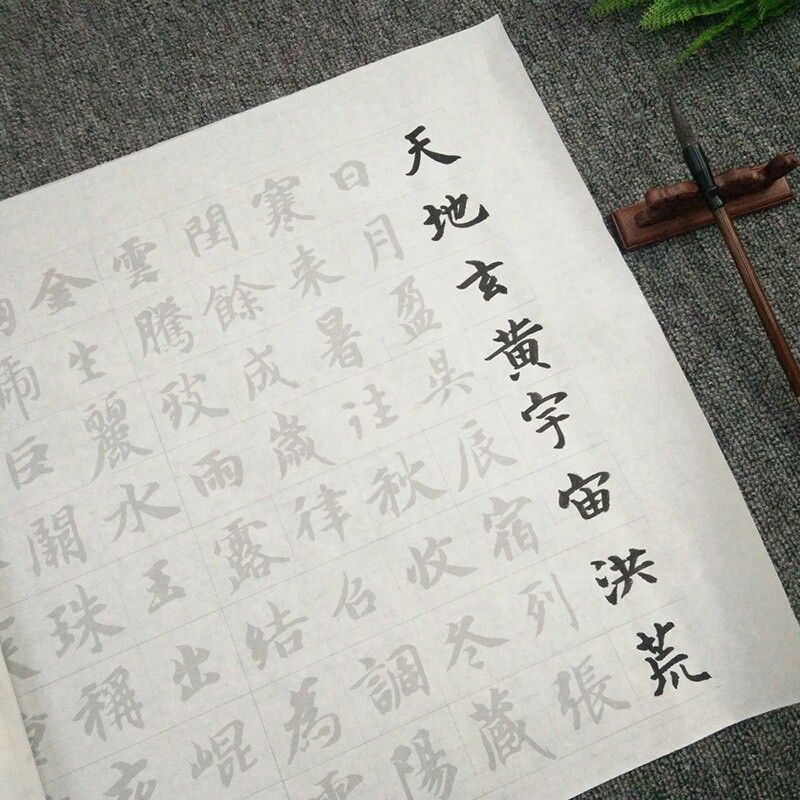 天地玄黄宇宙洪荒
日月盈昃辰宿列張
寒来暑往秋收冬藏
閏餘成歲律召調陽
雲騰致雨露結為
金生麗水玉出崐
號巨闕珠稱夜